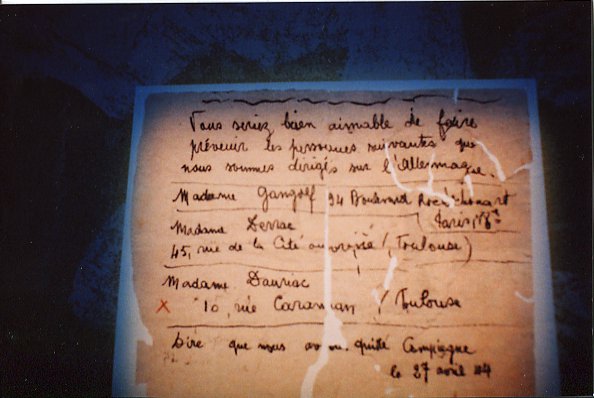 Vous seriez bien aimable de faire
prévenir les personnes suivantes que
nous sommes dirigés sur l'Allemagne.
Madame Gangolf 94 Boulevard Rochechouart
(Paris, 18e
Madame Derrac
45, rue de la Cité (Toulouse)
Madame Dauriac
X 10, rue Caraman / Toulouse
Dire que nous avons quitté Compiègne
le 27 avril 44